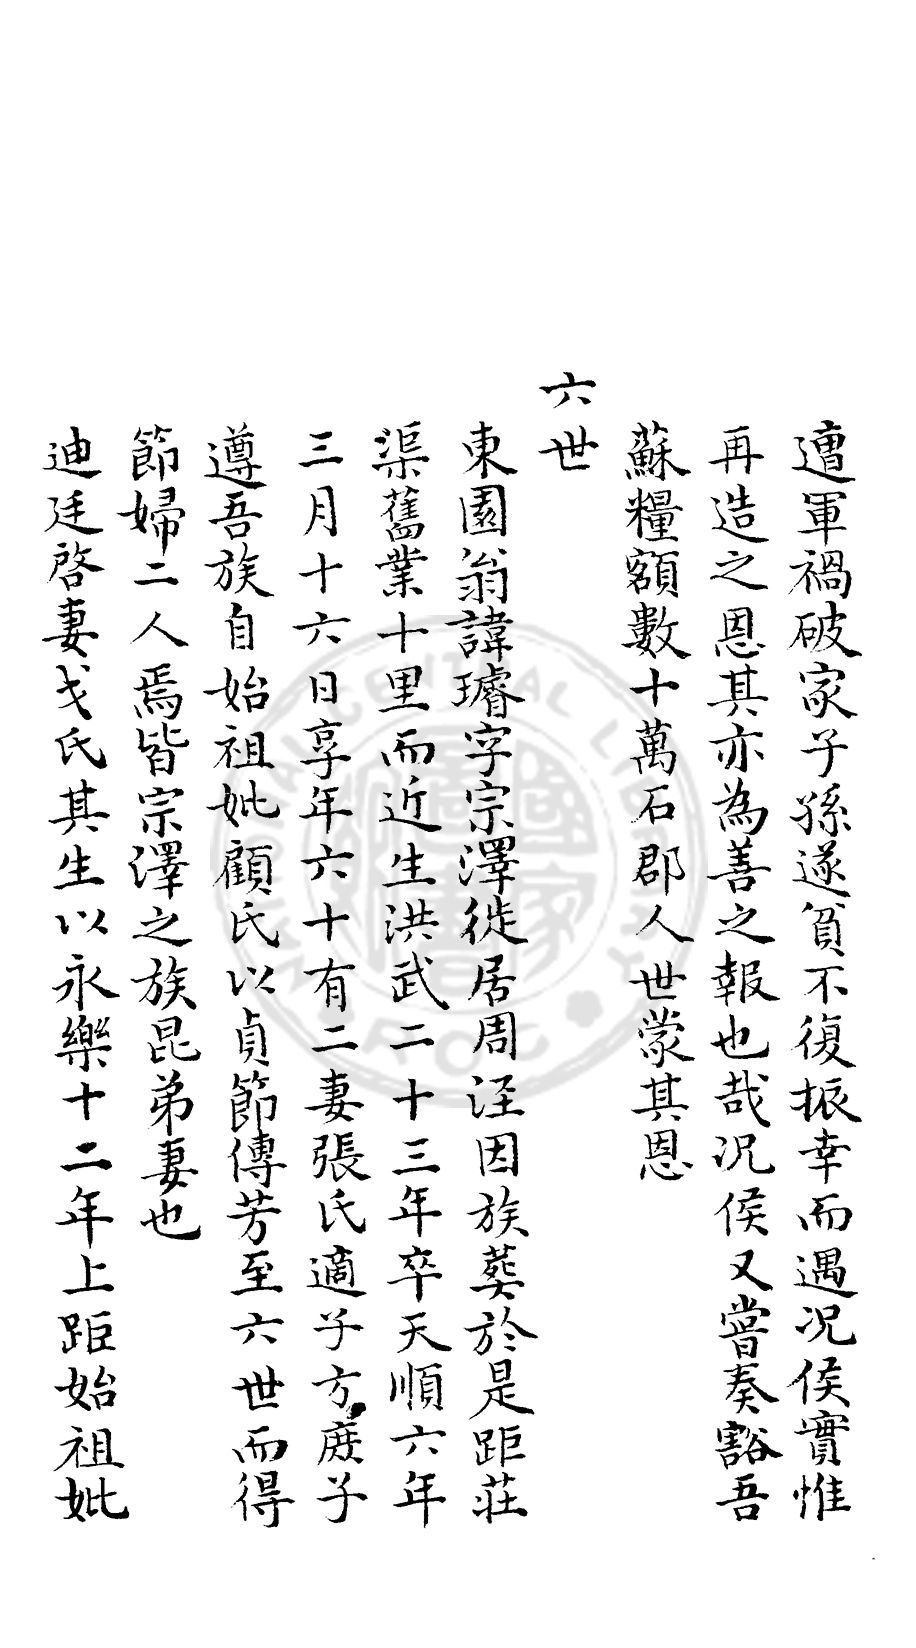 遭軍禍破家子孫遂貧不復振幸而遇況侯實惟
再造之恩其亦為善之報也哉況侯又嘗奏豁吾
蘇糧額數十萬石郡人世蒙其恩
六世
東園翁諱璿字宗澤徙居周涇因族葬於是距莊
渠舊業十里而近生洪武二十三年卒天順六年
三月十六日享年六十有二妻張氏適子方庶子
遵吾族自始祖妣顧氏以貞節傳芳至六世而得
節婦二人焉皆宗澤之族昆弟妻也
迪廷啓妻戈氏其生以永樂十二年上距始祖妣